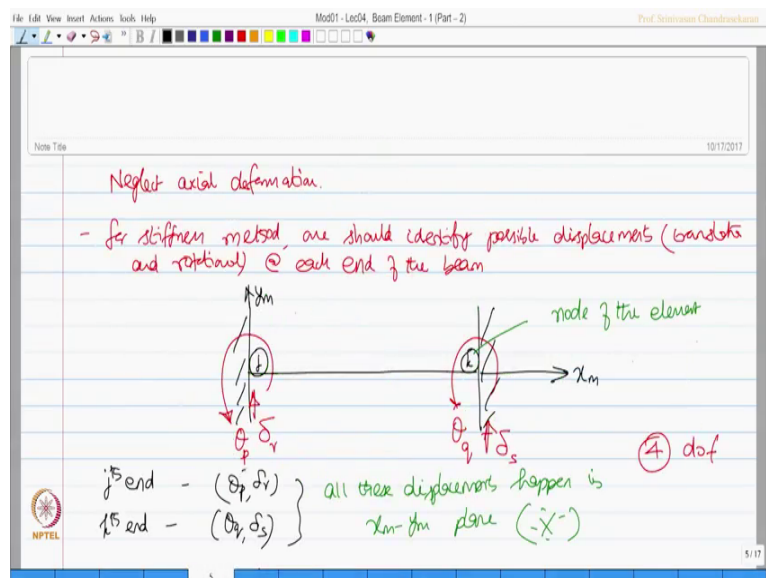 File Edit View Insert Actions Tools Help
Mod01 - Lec04, Beam Element - 1 (Part - 2)
Prof. Srinivasan Chandrasekaran
B I
Note Title
10/17/2017
Neglect axial deformation.
- for stiffness method, one should identify possible displacements (translational
and rotational) @ each end of the beam
ym
node of the element
j
k
xm
θp δr
θq δs
4 dof
jth end - (θp, δr)
kth end - (θq, δs)
all these displacements happen in
xm-ym plane (-X-)
NPTEL
5/17